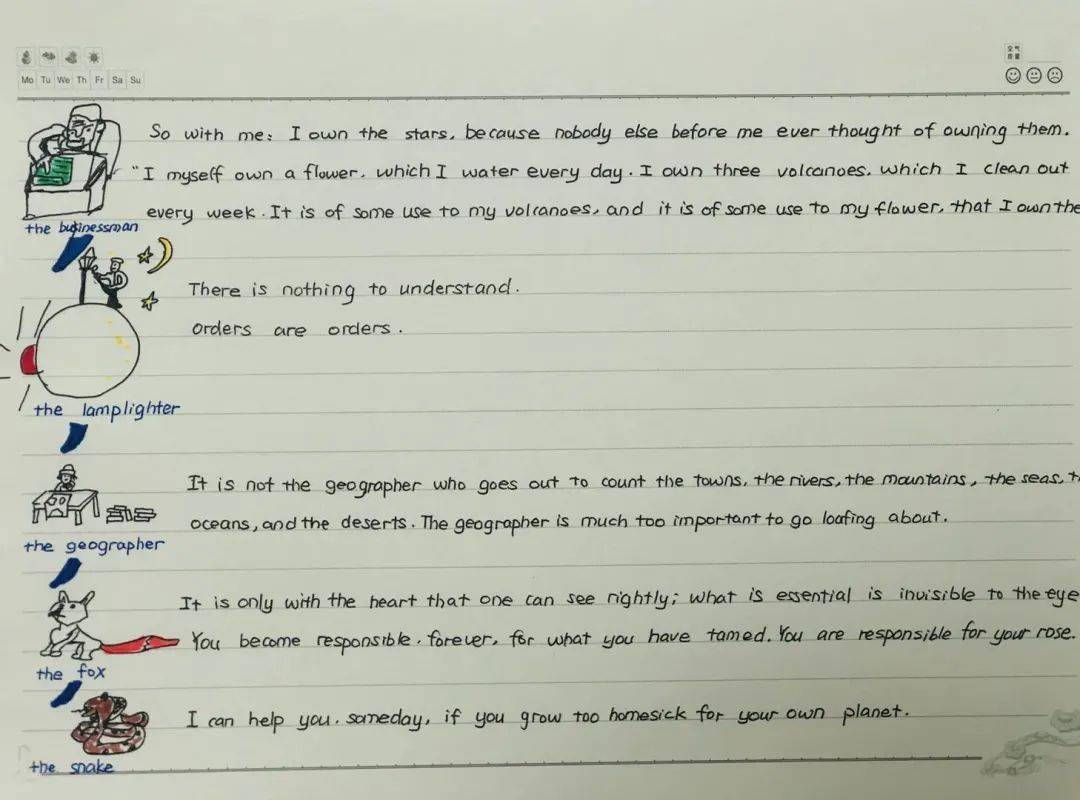 空气
质量
Mo Tu We Th Fr Sa Su
So with me: I own the stars, because nobody else before me ever thought of owning them.
"I myself own a flower, which I water every day. I own three volcanoes, which I clean out
every week. It is of some use to my volcanoes, and it is of some use to my flower, that I own the
the businessman
There is nothing to understand.
orders are orders.
the lamplighter
It is not the geographer who goes out to count the towns, the rivers, the mountains, the seas, t
oceans, and the deserts. The geographer is much too important to go loafing about.
the geographer
It is only with the heart that one can see rightly; what is essential is invisible to the eye
You become responsible, forever, for what you have tamed. You are responsible for your rose.
the fox
I can help you, someday, if you grow too homesick for your own planet.
the snake